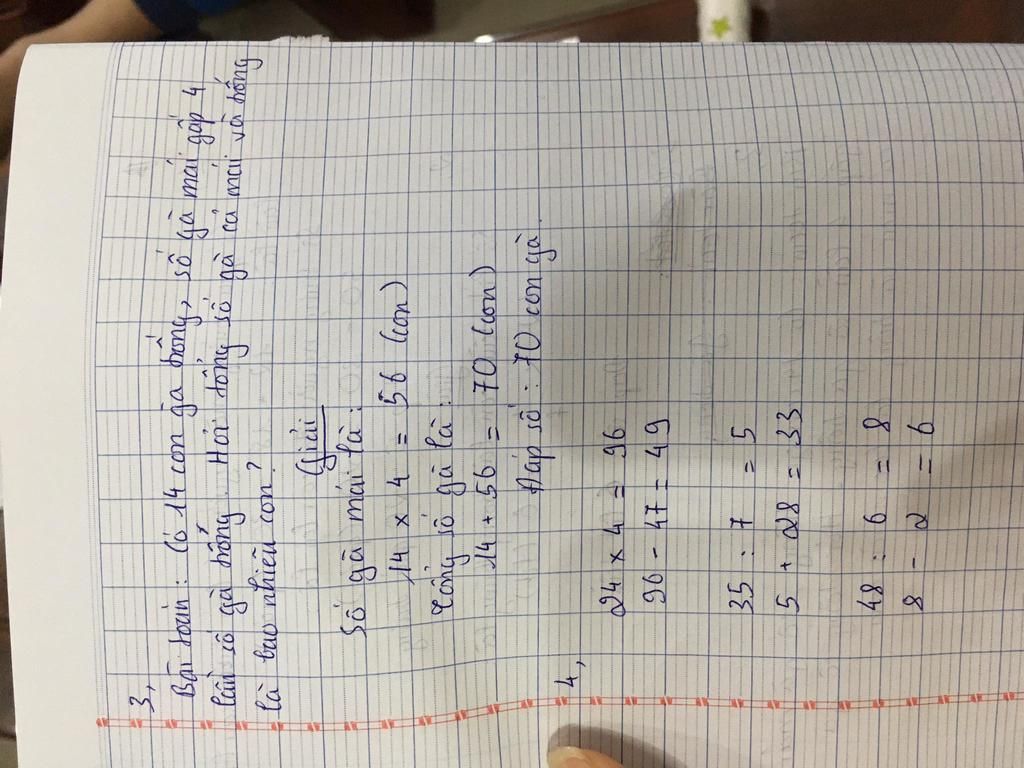 3,
Bài toán : Có 14 con gà trống, số gà mái gấp 4
lần số gà trống. Hỏi tổng số gà cả mái và trống
là bao nhiêu con?
Giải
Số gà mái là :
14 x 4 = 56 (con)
Tổng số gà là :
14 + 56 = 70 (con)
Đáp số : 70 con gà.
4,
24 x 4 = 96
96 - 47 = 49
35 : 7 = 5
5 + 28 = 33
48 : 6 = 8
8 - 2 = 6